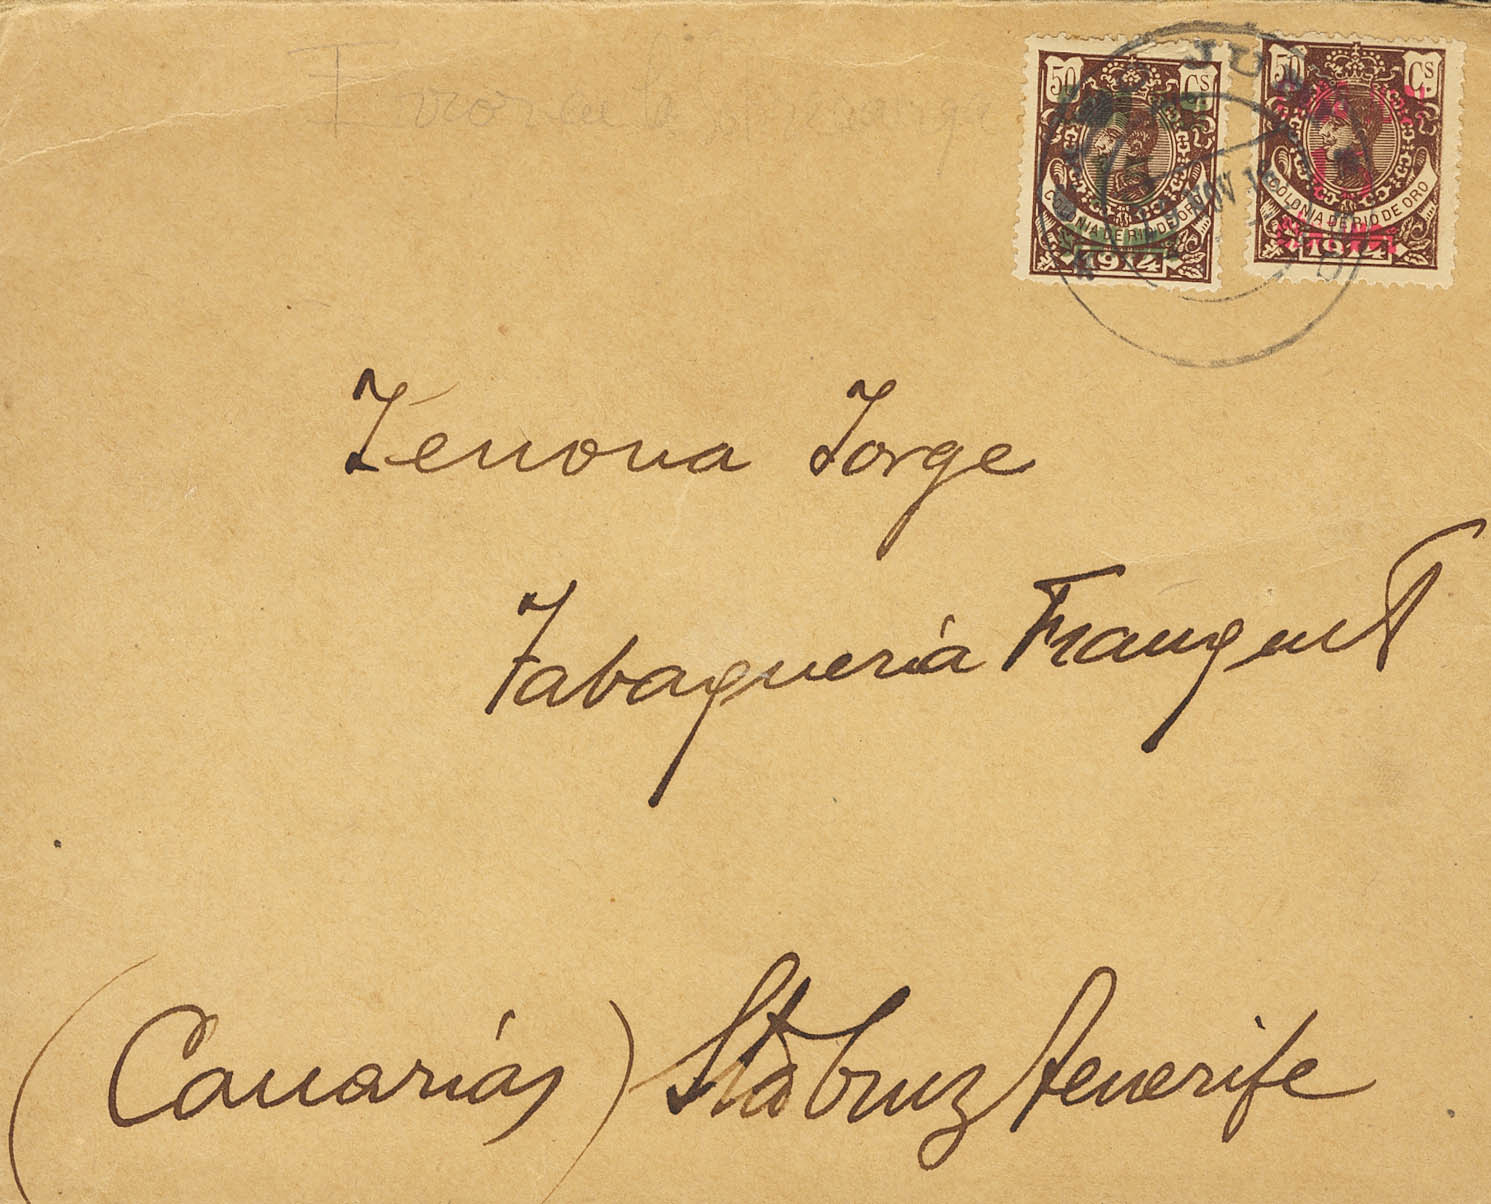 50 Cs
COLONIA DE RIO DE ORO
1914
50 Cs
COLONIA DE RIO DE ORO
1914
JUBY
NOV
Jorge
Tabaquería Franquet
(Canarias) Sta Cruz Tenerife